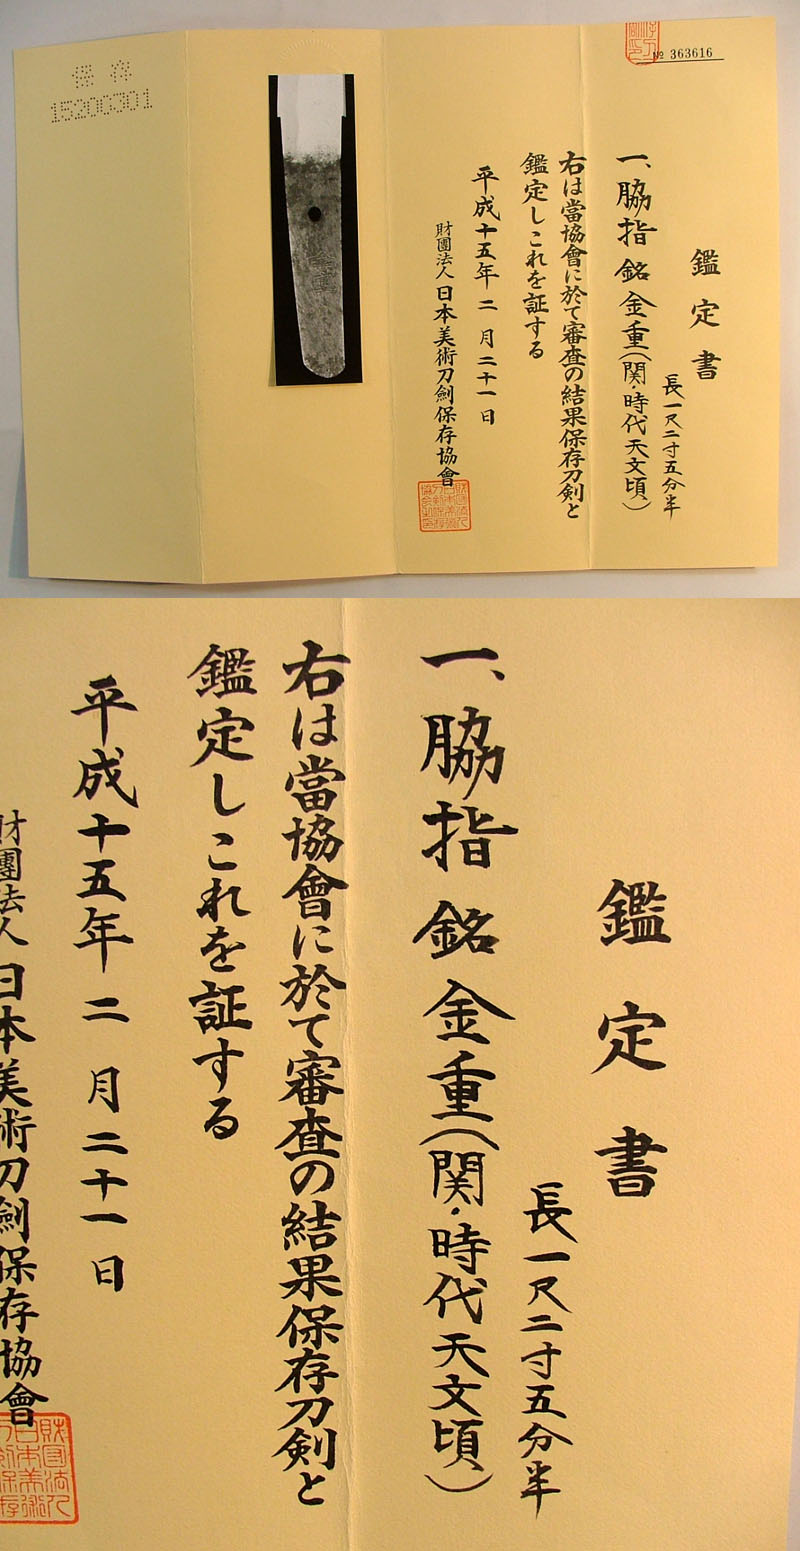 № 363616
鑑定書
長一尺二寸五分半
一、脇指 銘 金重(関・時代天文頃)
右は當協會に於て審査の結果保存刀剣と
鑑定しこれを証する
平成十五年二月二十一日
財團法人 日本美術刀劍保存協會
保存
15200301
鑑定書
長一尺二寸五分半
一、脇指 銘 金重(関・時代天文頃)
右は當協會に於て審査の結果保存刀剣と
鑑定しこれを証する
平成十五年二月二十一日
財團法人 日本美術刀劍保存協會